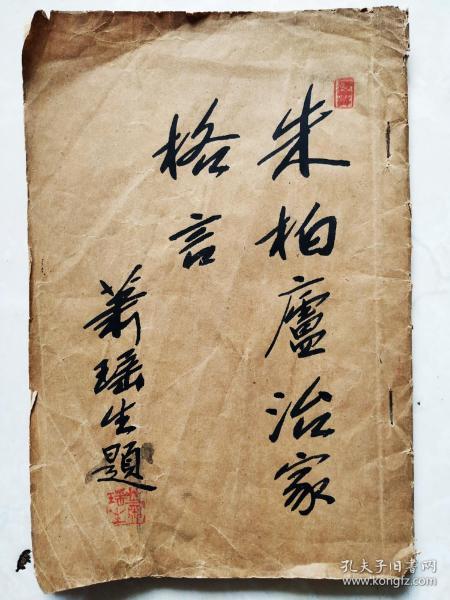 朱柏廬治家
格言
萧瑶生題
孔夫子旧书网
www.kongfz.com